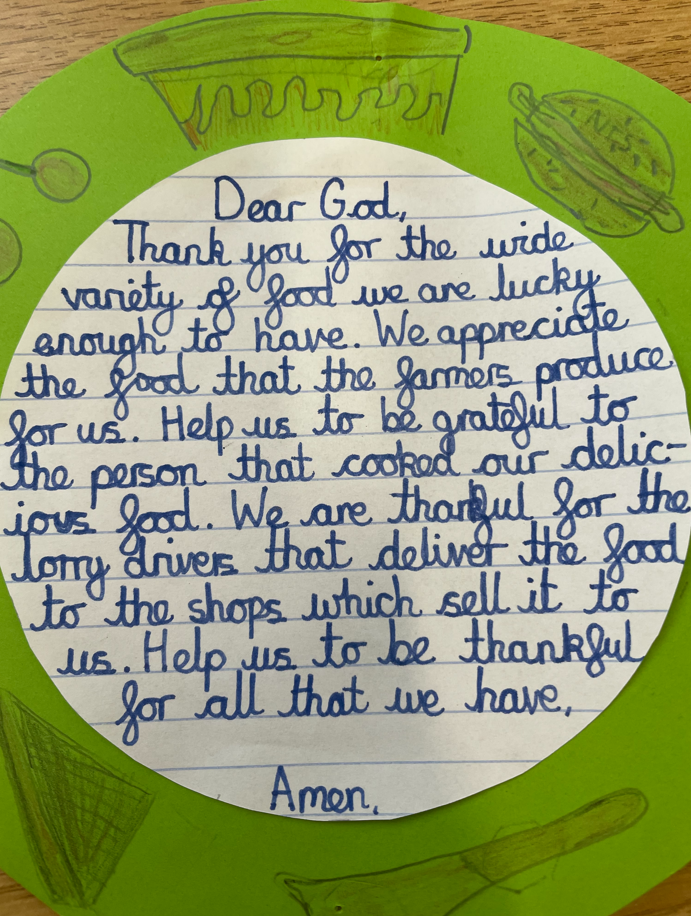 Dear God,
Thank you for the wide
variety of food we are lucky
enough to have. We appreciate
the food that the farmers produce
for us. Help us to be grateful to
the person that cooked our delic-
ious food. We are thankful for the
lorry drivers that deliver the food
to the shops which sell it to
us. Help us to be thankful
for all that we have,
Amen.